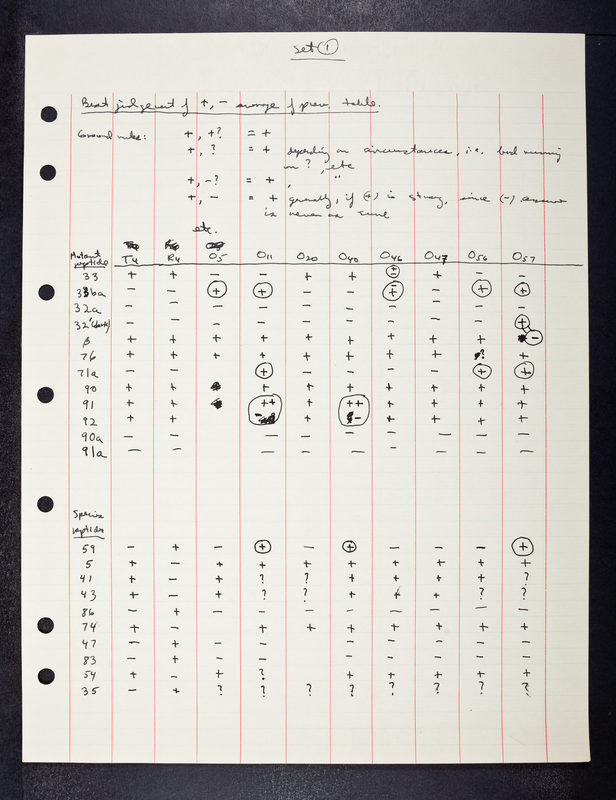 Set ①
Best judgement of +, - average of prev. table.
Ground rules: +, +? = +
+, ? = + depending on circumstances, i.e. bad running
on ?, etc
+, -? = + , "
+, - = + generally, if (+) is strong, since (-) answer
is never as sure
etc.
Mutant peptide T4 R4 O5 O11 O20 O40 O46 O47 O56 O57
33 + + - - + + ± + - -
33ba - - ⊕ ⊕ - - ± - ⊕ ⊕
32a - - - - - - - - - -
32'(dark) - - - - - - - - - ⊕
β + + + + + + + + + -
76 + + + + + + + + ? +
71a - - - ⊕ - - - - ⊕ ⊕
90 + + + + + + + + +
91 + + ++ + ++ + + + +
92 + + - + - + + + +
90a - - - - - - - - -
91a - - - - - - - - -
Species peptide
59 - + - ⊕ - ⊕ - - - ⊕
5 + - + + + + + + + +
41 + - + ? ? + + + + ?
43 + - + ? ? + + + ? ?
86 - + - - - - - - - -
74 + - + + + + + + +
47 - + - - - - - - -
83 - + - - - - - - -
54 + - + ? + + + + +
35 - + ? ? ? ? ? ? ? ?